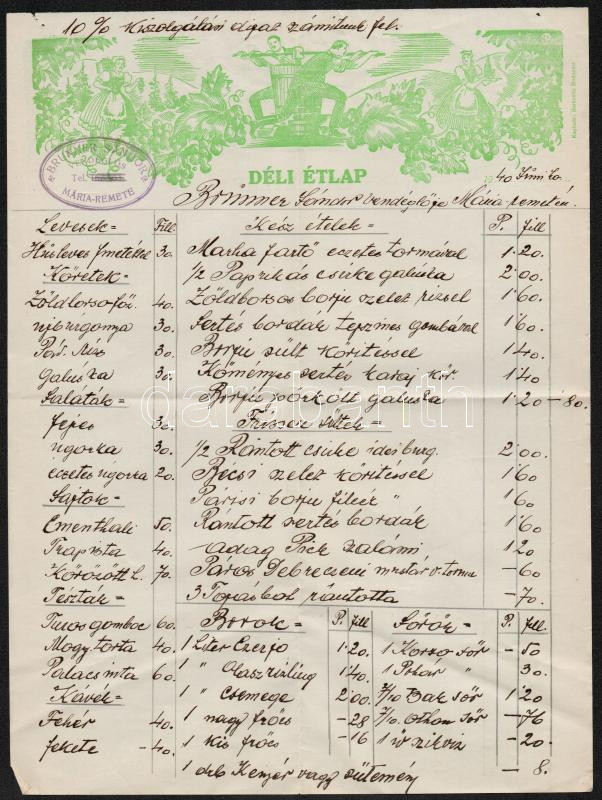 10% kiszolgálási dijat számitunk fel.
BRUNNER SÁNDOR
VENDÉGLŐS
Tel.
MÁRIA-REMETE
DÉLI ÉTLAP
1940
Brunner Sándor vendéglője Mária remetén
Levesek = Fill
Húsleves f. metélttel 30.
Köretek =
Zöldborsófőz. 40.
ujburgonya 30.
Pár. Rizs 30.
galuska 30.
Saláták =
fejes 30.
ugorka 30.
eczetes ugorka 20.
Sajtok =
Ementhali 50.
Trapista 40.
Körözött l. 70.
Tészták =
Turosgomboc 60.
Mogy. torta 40.
Palacsinta 60.
Kávék =
Fehér 40.
fekete - 40.
Kész ételek = P. fill
Marha fartő eczetes tormával 1.20.
1/2 Paprikás csirke galuska 2.00.
Zöldborsos borju szelet rizsel 1.60.
Sertés bordák tejszines gombával 1.60.
Borju sült körítéssel 1.40
Köményes sertés karaj kör. 1.40
Borju pörkölt galuska 1.20 - 80.
Frissen sültek =
1/2 Rántott csirke idei burg. 2.00.
Bécsi szelet körítéssel 1.60
Párisi borju filéé " 1.60
Rántott sertés bordák 1.60
- adag Pick szalámi 1.20
Páros Debreceni mustár v. torma - 60
3 Tojásból rántotta - 70.
Borok = P. fill
1 Liter Ezerjo 1.20.
1 " Olaszrizling 1.40.
1 " Csemege 2.00.
1 nagy fröcs - 28
1 kis fröcs - 16
1 drb Kenyér vagy sütemény - 8.
Sörök = P. fill.
1 Korso sör - 50
1 Pohár " 30.
7/10 Bak sör 1.20
7/10. Othon sör - 76
1 ü szikviz - 20.
darabanth